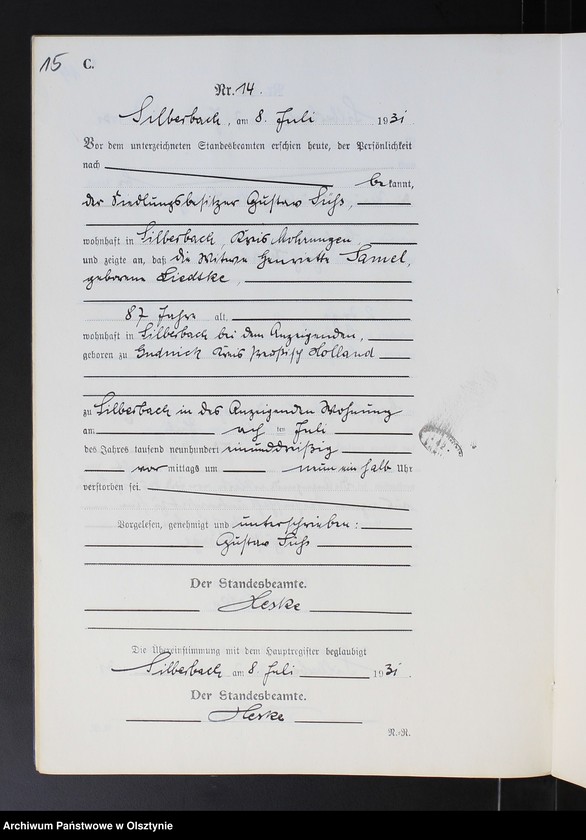 15 C.
Nr. 14.
Silberbach, am 8. Juli 1931
Vor dem unterzeichneten Standesbeamten erschien heute, der Persönlichkeit
nach
bekannt,
der Siedlungsbesitzer Gustav
wohnhaft in Silberbach, Kreis Mohrungen
und zeigte an, daß die Witwe Henriette Samel,
geborene Liedtke,
87 Jahre alt,
wohnhaft in Silberbach bei dem Anzeigenden,
geboren zu Kreis Preußisch Holland
zu Silberbach in des Anzeigenden Wohnung
am ten Juli
des Jahres tausend neunhundert einunddreißig
vor mittags um neun ein halb Uhr
verstorben sei.
Vorgelesen, genehmigt und unterschrieben:
Gustav
Der Standesbeamte.
Heske
Die Übereinstimmung mit dem Hauptregister beglaubigt
Silberbach am 8. Juli 1931.
Der Standesbeamte.
Heske
N.-R.
Archiwum Państwowe w Olsztynie